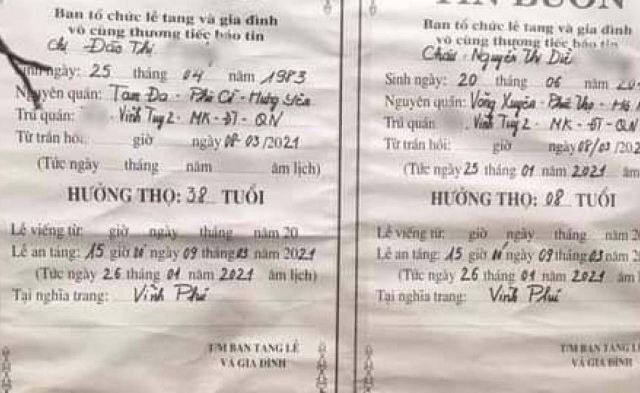 Ban tổ chức lễ tang và gia đình
vô cùng thương tiếc báo tin
Chị Đào Thị
Sinh ngày: 25 tháng 04 năm 1983
Nguyên quán: Tam Đa - Phù Cừ - Hưng Yên
Trú quán: Vĩnh Tuy 2 - MK - ĐT - QN
Từ trần hồi: giờ ngày 08-03/2021
(Tức ngày tháng năm âm lịch)
HƯỞNG THỌ: 38 TUỔI
Lễ viếng từ: giờ ngày tháng năm 20
Lễ an táng: 15 giờ ngày 09 tháng 03 năm 2021
(Tức ngày 26 tháng 01 năm 2021 âm lịch)
Tại nghĩa trang: Vĩnh Phú
T/M BAN TANG LỄ
VÀ GIA ĐÌNH
TIN BUỒN
Ban tổ chức lễ tang và gia đình
vô cùng thương tiếc báo tin
Cháu Nguyễn Thị
Sinh ngày: 20 tháng 06 năm
Nguyên quán: Võng Xuyên - Phúc Thọ -
Trú quán Vĩnh Tuy 2 - MK - ĐT - QN
Từ trần hồi: giờ ngày 08/03/202
(Tức ngày 25 tháng 01 năm 2021 âm
HƯỞNG THỌ: 08 TUỔI
Lễ viếng từ: giờ ngày tháng năm 2
Lễ an táng: 15 giờ ngày 09 tháng 03 năm 2
(Tức ngày 26 tháng 01 năm 2021 âm
Tại nghĩa trang: Vĩnh Phú
T/M BAN TANG
VÀ GIA ĐÌNH